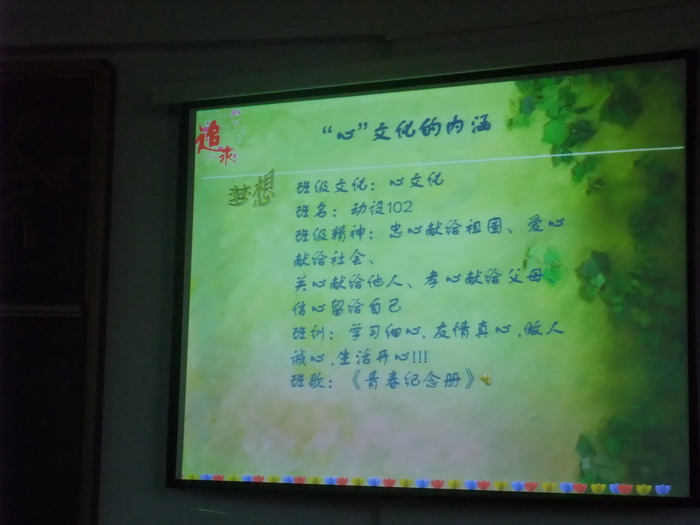 追求
“心”文化的内涵
梦想
班级文化：心文化
班名：动设102
班级精神：忠心献给祖国、爱心
献给社会、
关心献给他人、孝心献给父母
信心留给自己
班训：学习细心,友情真心,做人
诚心,生活开心!!!
班歌：《青春纪念册》